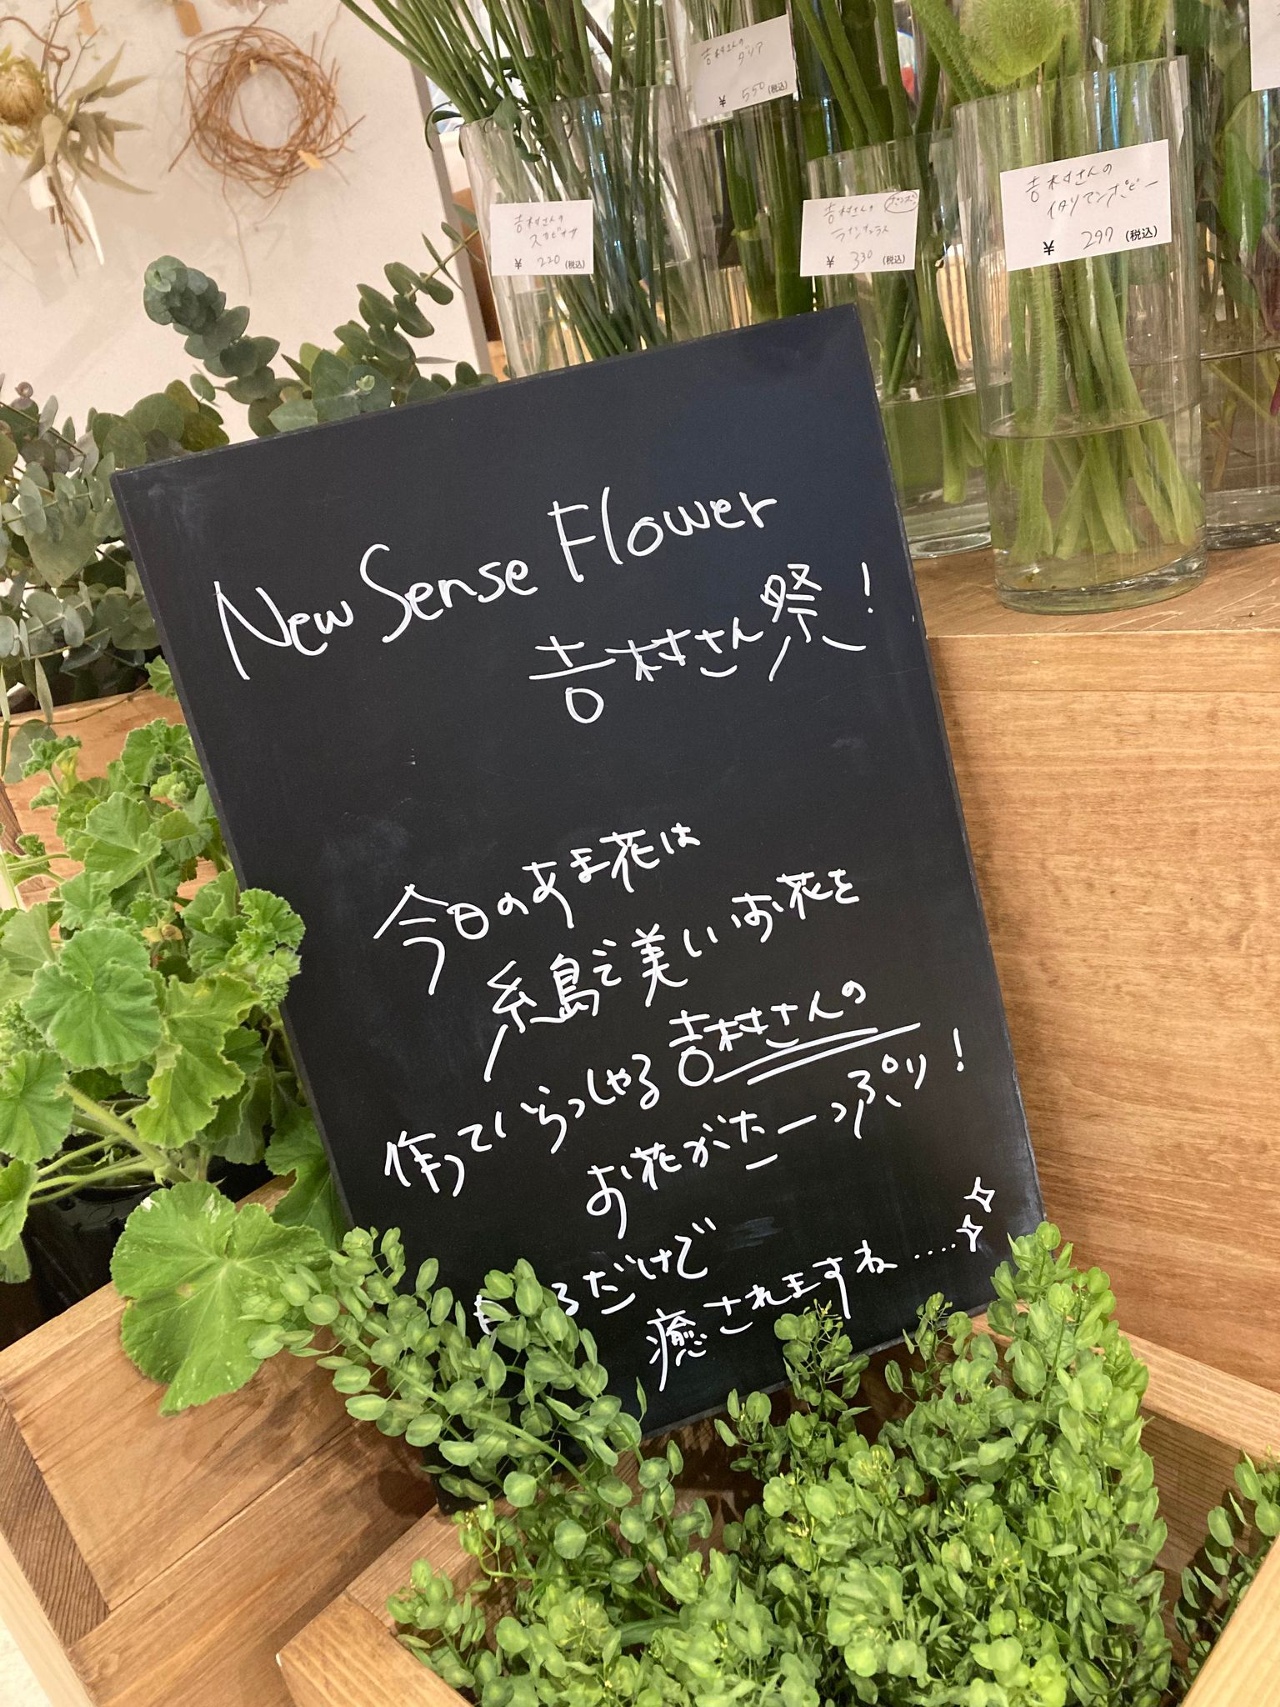 吉村さんの
ダリア
¥ 550 (税込)
吉村さんの
スカビオサ
¥ 220 (税込)
吉村さんの
ラナンキュラス
¥ 330 (税込)
吉村さんの
イタリアンポピー
¥ 297 (税込)
New Sense Flower
吉村さん祭!
今日のあま花は
糸島で美しいお花を
作っていらっしゃる吉村さんの
お花がたーっぷり!
るだけで
癒されますね……